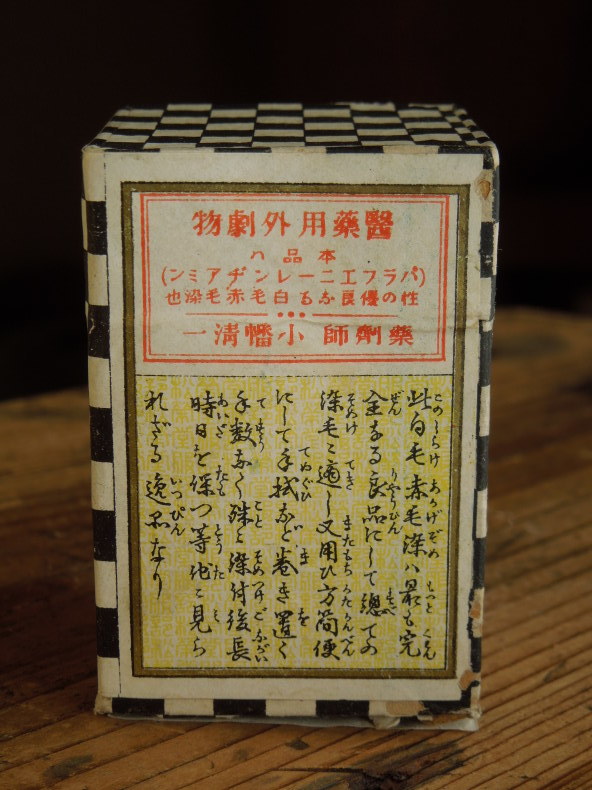 醫藥用外劇物
本品ハ
(パラフエニーレンヂアミン)
性の優良なる白毛赤毛染也
藥劑師 小幡清一
此白毛赤毛染ハ最も完
全なる良品にして總ての
染毛に適し又用ひ方簡便
にして手拭など巻き置く
手数なく殊に染付後長
時日を保つ等他に見ら
れざる逸品なり